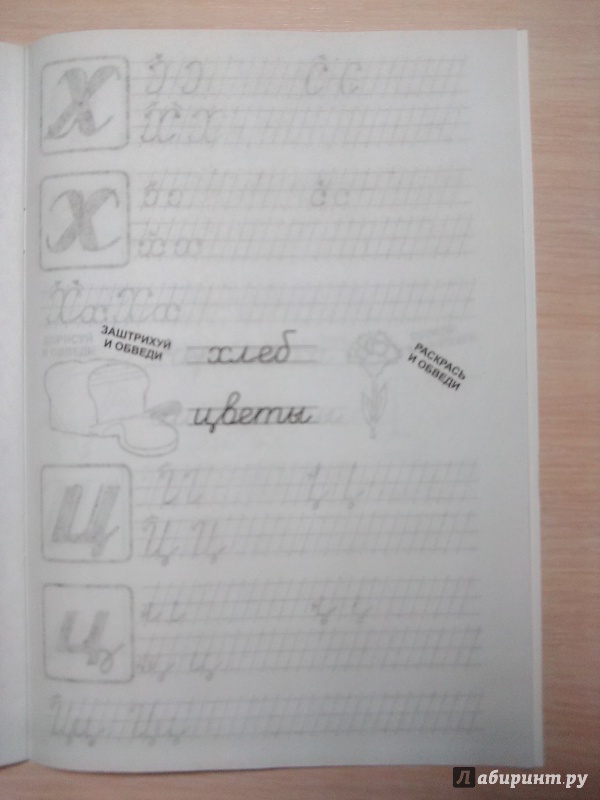 Х Э Э С С
Х Х
х э э с с
х х
Хх Хх
ЗАШТРИХУЙ
И ОБВЕДИ
хлеб
РАСКРАСЬ
И ОБВЕДИ
цветы
Ц И И
Ц Ц
ц и и
ц ц
Цц Цц
Лабиринт.ру